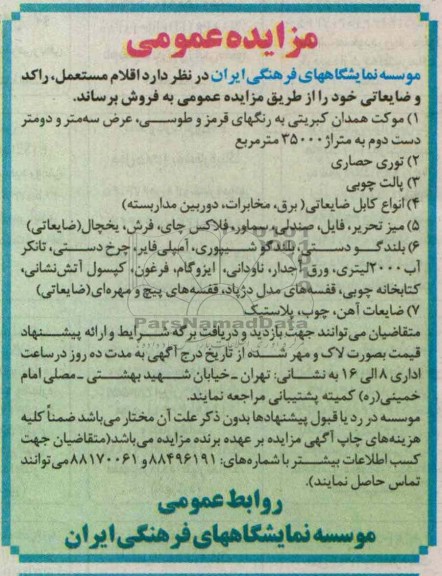 مزایده عمومی
موسسه نمایشگاههای فرهنگی ایران در نظر دارد اقلام مستعمل، راکد
و ضایعاتی خود را از طریق مزایده عمومی به فروش برساند.
۱) موکت همدان کبریتی به رنگهای قرمز و طوسی، عرض سه‌متر و دومتر
دست دوم به متراژ ۳۵۰۰۰ مترمربع
۲) توری حصاری
۳) پالت چوبی
۴) انواع کابل ضایعاتی( برق، مخابرات، دوربین مداربسته)
۵) میز تحریر، فایل، صندلی، سماور، فلاکس چای، فرش، یخچال(ضایعاتی)
۶) بلندگو دستی، بلندگو شیپوری، آمپلی‌فایر، چرخ دستی، تانکر
آب ۲۰۰۰لیتری، ورق آجدار، ناودانی، ایزوگام، فرغون، کپسول آتش‌نشانی،
کتابخانه چوبی، قفسه‌های مدل دژپاد، قفسه‌های پیچ و مهره‌ای(ضایعاتی)
۷) ضایعات آهن، چوب، پلاستیک
ParsNamadData
متقاضیان می‌توانند جهت بازدید و دریافت برگه شرایط و ارائه پیشنهاد
قیمت بصورت لاک و مهر شده از تاریخ درج آگهی به مدت ده روز در ساعت
اداری ۸ الی ۱۶ به نشانی: تهران ـ خیابان شهید بهشتی ـ مصلی امام
خمینی(ره) کمیته پشتیبانی مراجعه نمایند.
موسسه در رد یا قبول پیشنهادها بدون ذکر علت آن مختار می‌باشد ضمناً کلیه
هزینه‌های چاپ آگهی مزایده بر عهده برنده مزایده می‌باشد(متقاضیان جهت
کسب اطلاعات بیشتر با شماره‌های: ۸۸۴۹۶۱۹۱ و ۸۸۱۷۰۰۶۱ می‌توانند
تماس حاصل نمایند).
روابط عمومی
موسسه نمایشگاههای فرهنگی ایران